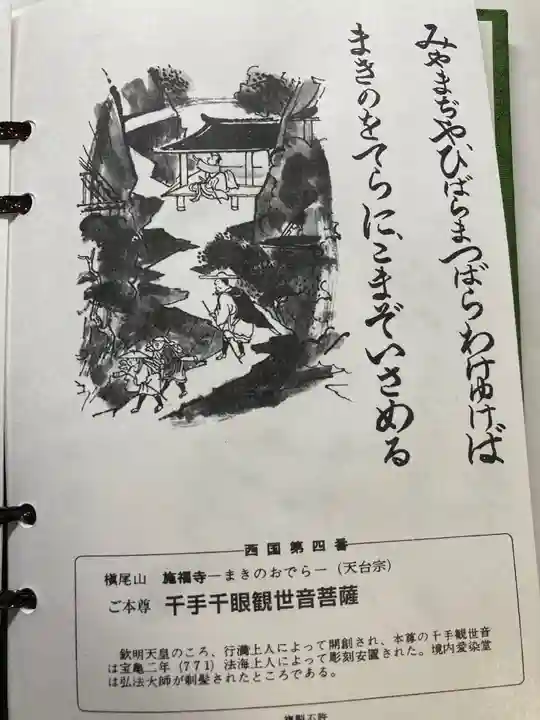 みやまぢや、ひばらまつばらわけゆけば
まきのをてらに、こまぞいさめる
西国第四番
槇尾山 施福寺―まきのおでら―（天台宗）
ご本尊 千手千眼観世音菩薩
欽明天皇のころ、行満上人によって開創され、本尊の千手観世音
は宝亀二年（771）法海上人によって彫刻安置された。境内愛染堂
は弘法大師が剃髪されたところである。
複製不許